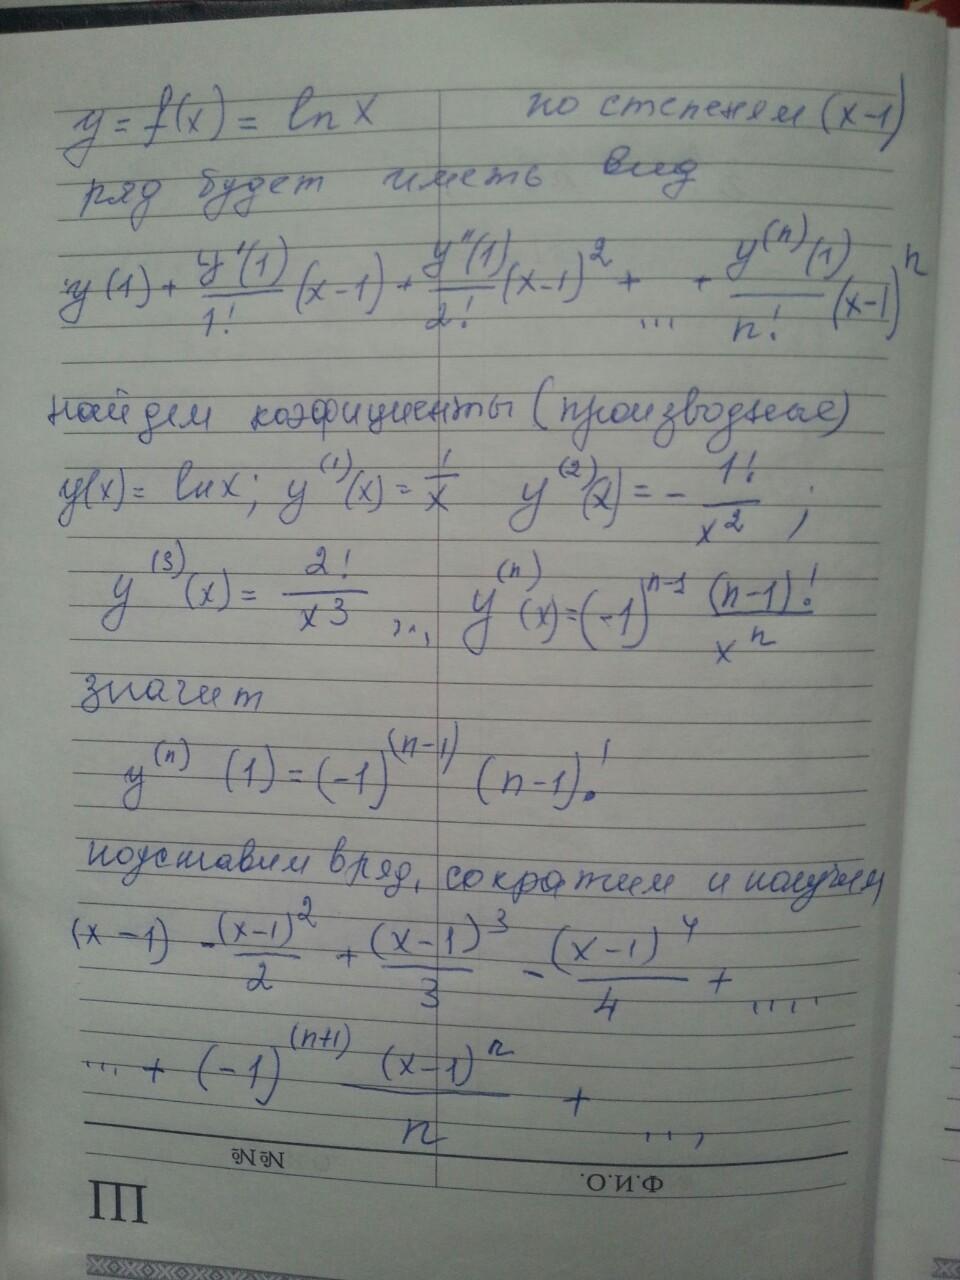 y = f(x) = ln x по степеням (x-1)
ряд будет иметь вид
y(1) + y'(1)/1! (x-1) + y''(1)/2! (x-1)² + ... + y⁽ⁿ⁾(1)/n! (x-1)ⁿ
найдем коэфициенты (производные)
y(x) = ln x; y⁽¹⁾(x) = 1/x y⁽²⁾(x) = - 1!/x² ;
y⁽³⁾(x) = 2!/x³ ..., y⁽ⁿ⁾(x) = (-1)ⁿ⁻¹ (n-1)!/xⁿ
значит
y⁽ⁿ⁾ (1) = (-1)⁽ⁿ⁻¹⁾ (n-1)!
подставим в ряд, сократим и получим
(x-1) - (x-1)²/2 + (x-1)³/3 - (x-1)⁴/4 + ....
... + (-1)⁽ⁿ⁺¹⁾ (x-1)ⁿ/n + ...
№№ Ф.И.О.
Ш